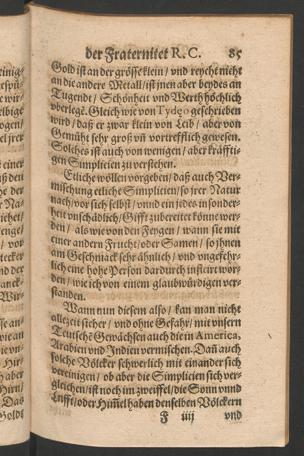 der Fraternitet R. C. 85
Gold ist an der grösse klein / vnd reycht nicht
an die andere Metall / ist jnen aber beydes an
Tugendt / Schönheit vnd Werth höchlich
vberlegē. Gleich wie von Tydeo geschrieben
wird / daß er zwar klein von Leib / aber von
Gemüht sehr groß vñ vortrefflich gewesen.
Solches ist auch von wenigen / aber kräffti-
gen Simplicien zu verstehen.
Etliche wöllen vorgeben / daß auch Ver-
mischung etliche Simplicien / so jrer Natur
nach / vor sich selbst / vnnd ein jedes in sonder-
heit vnschädlich / Gifft zubereitet könne wer-
den / als wie von den Feygen / wann sie mit
einer andern Frucht / oder Samen / so jhnen
am Geschmack sehr ähnlich / vnd vngefehr-
lich eine hohe Person dardurch inficirt wor-
den / wie ich von einem glaubwürdigen ver-
standen.
Wann nun diesem also / kan man nicht
allezeit sicher / vnd ohne Gefahr / mit vnsern
Teutsche Gewächsen auch die in America,
Arabien vnd Indien vermischen. Dañ auch
solche Völcker schwerlich mit einander sich
vereinigen / ob aber die Simplicien sich ver-
gleichen / ist noch im zweiffel / die Sonn vnnd
Lufft / oder Him̃el haben denselben Völckern
F iiij vnd